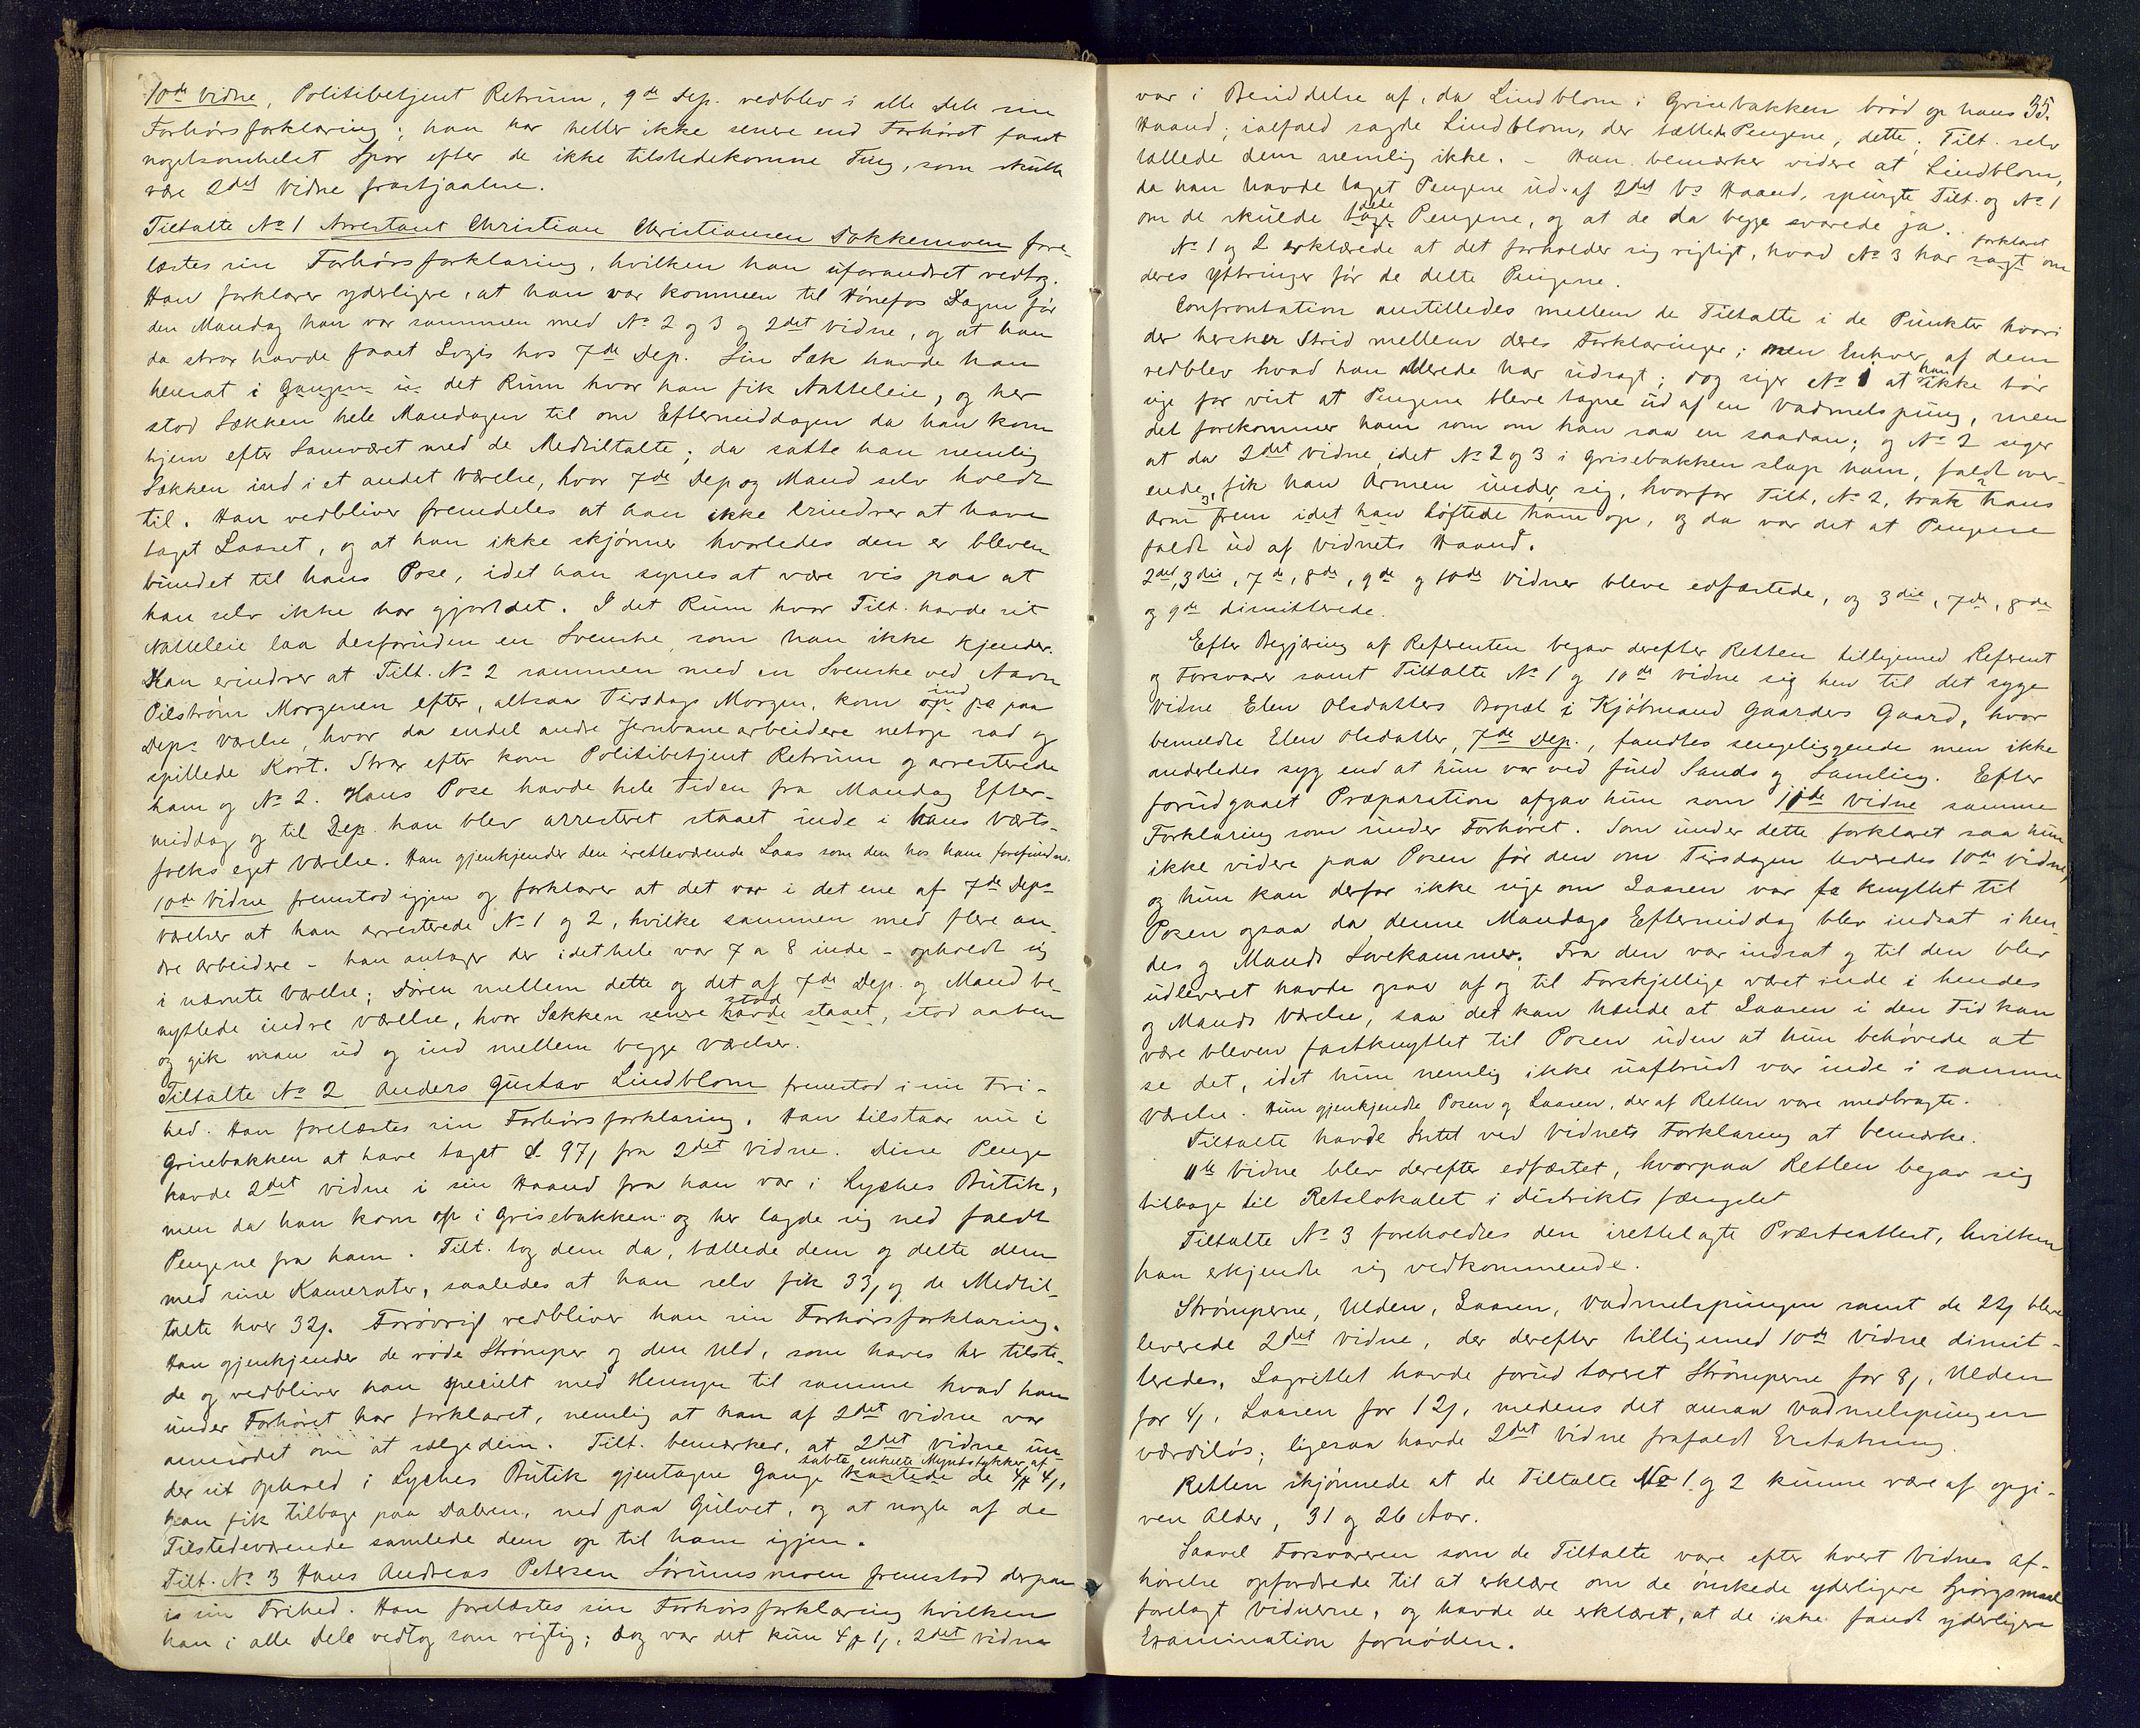 10de Vidne, Politibetjent Retrum, 9de Dep. vedblev i alle Dele sin
Forhørsforklaring; han har heller ikke senere end Forhøret faaet
nogetsomhelst Spor efter de ikke tilstedekomne Ting, som skulle
være 2det Vidne frastjaalne.
Tiltalte No 1 Arrestant Christian Christiansen Dokkemoen fore-
læstes sin Forhørsforklaring, hvilken han uforandret vedtog.
Han forklarer yderligere, at han var kommen til Hønefos Dagen før
den Mandag han var sammen med No 2 og 3 og 2det Vidne, og at han
da strax havde faaet Logis hos 7de Dep. Sin Sæk havde han
hensat i Gangen i det Rum hvor han fik Natteleie, og her
stod Sækken hele Mandagen til om Eftermiddagen da han kom
hjem efter Samværet med de Medtiltalte; da satte han nemlig
Sækken ind i et andet Værelse, hvor 7de Dep og Mand selv holdt
til. Han vedbliver fremdeles at han ikke erindrer at have
taget Laaset, og at han ikke skjønner hvorledes den er bleven
bundet til hans Pose, idet han synes at være vis paa at
han selv ikke har gjort det. I det Rum hvor Tilt. havde sit
Natteleie laa desforuden en Svenske som han ikke kjender.
Han erindrer at Tilt. No 2 sammen med en Svenske ved Navn
Pilstrøm Morgenen efter, altsaa Tirsdags Morgen, kom op ind paa
Deps Værelse, hvor da endel andre Jernbanearbeidere netop sad og
spillede Kort. Strax efter kom Politibetjent Retrum og arresterede
ham og No 2. Hans Pose havde hele Tiden fra Mandag Efter-
middag og til Dep. han blev arresteret staaet inde i hans Værts-
folks eget Værelse. Han gjenkjender den iretteværende Laas som den hos ham forefundne.
10de Vidne fremstod igjen og forklarer at det var i det ene af 7de Deps
Værelser at han arresterede No 1 og 2, hvilke sammen med flere an-
dre Arbeidere – han antager der idethele var 7 a 8 inde – opholdt sig
i nævnte Værelse; Døren mellem dette og det af 7de Dep. og Mand be-
nyttede indre Værelse, hvor Sækken senere havde staaet stod, stod aaben
og gik man ud og ind mellem begge Værelser.
Tiltalte No 2 Anders Gustav Lindblom fremstod i sin Fri-
hed. Han forelæstes sin Forhørsforklaring. Han tilstaar nu i
Grisebakken at have taget 97 fra 2det Vidne. Disse Penge
havde 2det Vidne i sin Haand fra han var i Lyches Butik,
men da han kom op i Grisebakken og her lagde sig ned faldt
Pengene fra ham. Tilt. tog dem da, tællede dem og delte dem
med sine Kamerater, saaledes at han selv fik 33 og de Medtil-
talte hver 32. Forøvrigt vedbliver han sin Forhørsforklaring.
Han gjenkjender de røde Strømper og den Uld, som haves her tilste-
de og vedbliver han specielt med Hensyn til samme hvad han
under Forhøret har forklaret, nemlig at han af 2det Vidne var
anmodet om at sælge dem. Tilt. bemærker, at 2det Vidne un-
der sit Ophold i Lyches Butik gjentagne Gange kastede tabte enkelte Myntstykker af de 4 4,
han fik tilbage paa Daleren, ned paa Gulvet, og at nogle af de
Tilstedeværende samlede dem op til ham igjen.
Tilt. No 3 Hans Andreas Petersen Sørumsmoen fremstod derpaa
i sin Frihed. Han forelæstes sin Forhørsforklaring hvilken
han i alle Dele vedtog som rigtig; dog var det kun 4 1, 2det Vidne
35.
var i Besiddelse af, da Lindblom i Grisebakken brød op hans
Haand; ialfald sagde Lindblom, der tællede Pengene, dette; Tilt. selv
tællede dem nemlig ikke. – Han bemærker videre at Lindblom,
da han havde taget Pengene ud af 2det Vs Haand, spurgte Tilt. og No 1
om de skulde tage dele Pengene, og at de da begge svarede ja.
No 1 og 2 erklærede at det forholder sig rigtigt, hvad No 3 har sagt forklaret om
deres Yttringer før de delte Pengene.
Confrontation anstilledes mellem de Tiltalte i de Punkter hvori
der hersker Strid mellem deres Forklaringer; men Enhver af dem
vedblev hvad han allerede har udsagt; dog siger No 1 at han ikke tør
sige for vist at Pengene bleve tagne ud af en Vadmelspung, men
det forekommer ham som om han saa en saadan; og No 2 siger
at da 2det Vidne, idet No 2 og 3 i Grisebakken slap ham, faldt over-
ende, fik han Armen under sig, hvorfor Tilt. No 2, trak hans
Arm frem idet han løftede ham op, og da var det at Pengene
faldt ud af Vidnets Haand.
2det, 3die, 7de, 8de, 9de og 10de Vidner bleve edfæstede, og 3die, 7de, 8de
og 9de dimitterede.
Efter Begjæring af Referenten begav derefter Retten tilligemed Referent
og Forsvarer samt Tiltalte No 1 og 10de Vidne sig hen til det syge
Vidne Elen Olsdatters Bopæl i Kjøbmand Gaarders Gaard, hvor
bemeldte Elen Olsdatter, 7de Dep., fandtes sengeliggende men ikke
anderledes syg end at hun var ved fuld Sands og Samling. Efter
forudgaaet Præparation afgav hun som 11de Vidne samme
Forklaring som under Forhøret. Som under dette forklaret saa hun
ikke videre paa Posen før den om Tirsdagen leveredes 10de Vidne,
og hun kan derfor ikke sige om Laasen var fa knyttet til
Posen ogsaa da denne Mandags Eftermiddag blev indsat i hen-
des og Mands Sovekammer. Fra den var indsat og til den blev
udleveret havde ogsaa af og til Forskjellige været inde i hendes
og Mands Værelse, saa det kan hænde at Laasen i den Tid kan
være bleven fastknyttet til Posen uden at hun behøvede at
se det, idet hun nemlig ikke uafbrudt var inde i samme
Værelse. Hun gjenkjendte Posen og Laasen, der af Retten vare medbragte.
Tiltalte havde Intet ved Vidnets Forklaring at bemærke.
11te Vidne blev derefter edfæstet, hvorpaa Retten begav sig
tilbage til Retslokalet i Distriktsfængslet
Tiltalte No 3 foreholdtes den irettelagte Præsteattest, hvilken
han erkjendte sig vedkommende.
Strømperne, Ulden, Laasen, Vadmelspungen samt de 22 bleve
leverede 2det Vidne, der derefter tilligemed 10de Vidne dimit-
teredes. Lagrettet havde forud taxeret Strømperne for 8, Ulden
for 4, Laasen for 12, medens det ansaa Vadmelspungen
værdiløs; ligesaa havde 2det Vidne frafaldt Erstatning.
Retten skjønnede at de Tiltalte No 1 og 2 kunne være af opgi-
ven Alder, 31 og 26 Aar.
Saavel Forsvareren som de Tiltalte vare efter hvert Vidnes Af-
hørelse opfordrede til at erklære om de ønskede yderligere Spørgsmaal
forelagt Vidnerne, og havde de erklæret, at de ikke fandt yderligere
Examination fornøden.